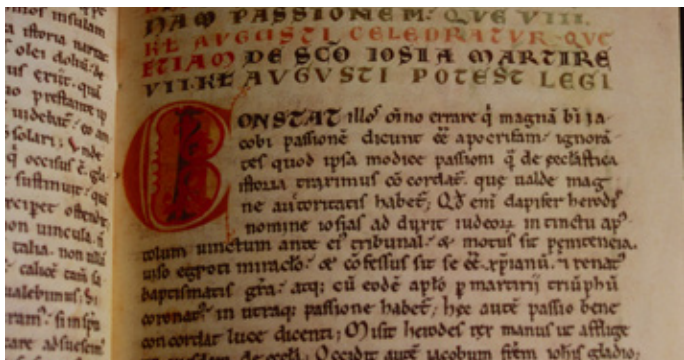 nos insulam
istoria narrat
olei
us erit. qui
p̄stante ip
uidebat. eo am
solari; Vnde
q̄ occisus ē. gla
sustinuit. qui
cipet
non uincula. n̄
talia. non
calicē tam̄ sa
ualebimus; Si
ram. si in ipsa
NAM PASSIONEM. QVE VIII.
KL̄ AVGVSTI CELEBRATVR. QVE
ETIAM DE SC̄O IOSIA MARTIRE
VII. KL̄ AVGVSTI POTEST LEGI
CONSTAT illos om̄no errare q̄ magnā bī Ja-
cobi passionē dicunt eē apocrifam. ignorā-
tes quod ipsa modice passioni q̄ de ecclastica
istoria traximus cōcordat. que ualde mag-
ne autoritatis habet̄; Qd̄ eni dapifer herodis
nomine iosias adduxit iudeoꝝ instinctu aps-
tolum uinctum ante ei tribunal. & motus sit penitencia.
uiso egroti miraclo. & cōfessus sit se eē xp̄ianū. ⁊ renat᷒
baptismatis grā. atq; cū eodē aplo p martirij triūphū
coronat᷒. in utraq; passione habet̄; hec autē passio bene
concordat luce dicenti; Misit herodes rex manus ut afflige
quosdam de eccla; Occidit autē iacobum frēm iohis gladio;